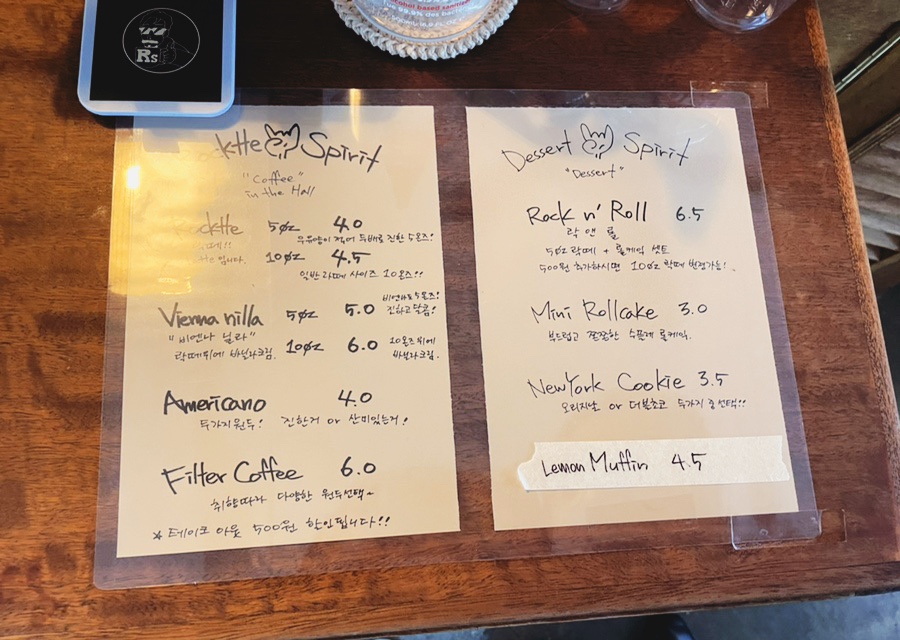 Rs
alcohol based sanitizer
cktte Spirit
"Coffee"
in the Hall
cktte 5oz 4.0
우유양이 적어 두배로 진한 5온즈!
입니다. 10oz 4.5
일반라떼 사이즈 10온즈!!
Vienna nilla 5oz 5.0
비엔나도 5온즈!
진하고 달콤!
"비엔나 닐라"
락떼위에 바닐라크림. 10oz 6.0
10온즈 위에
바닐라크림.
Americano 4.0
두가지원두! 진한거 or 산미있는거!
Filter Coffee 6.0
취향따라 다양한 원두선택~
☆ 테이크 아웃 500원 할인됩니다!!
Dessert Spirit
"Dessert"
Rock n' Roll 6.5
락 앤 롤
5oz 락떼 + 롤케익 셋트
500원 추가하시면 10oz 락떼 변경가능!
Mini Rollcake 3.0
부드럽고 쫀쫀한 수플레 롤케익.
NewYork Cookie 3.5
오리지날 or 더블초코 두가지 중 선택!!
Lemon Muffin 4.5